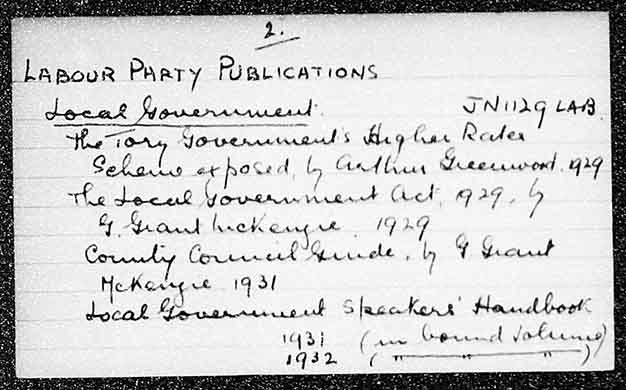 2.
LABOUR PARTY PUBLICATIONS
Local Government. JN1129 LAB.
The Tory Government's Higher Rates
Scheme exposed, by Arthur Greenwood. 1929
The Local Government Act, 1929, by
G. Grant McKenzie. 1929
County Council Guide, by G Grant
McKenzie 1931
Local Government Speakers' Handbook
1931 (in bound volume)
1932 ( " " " )